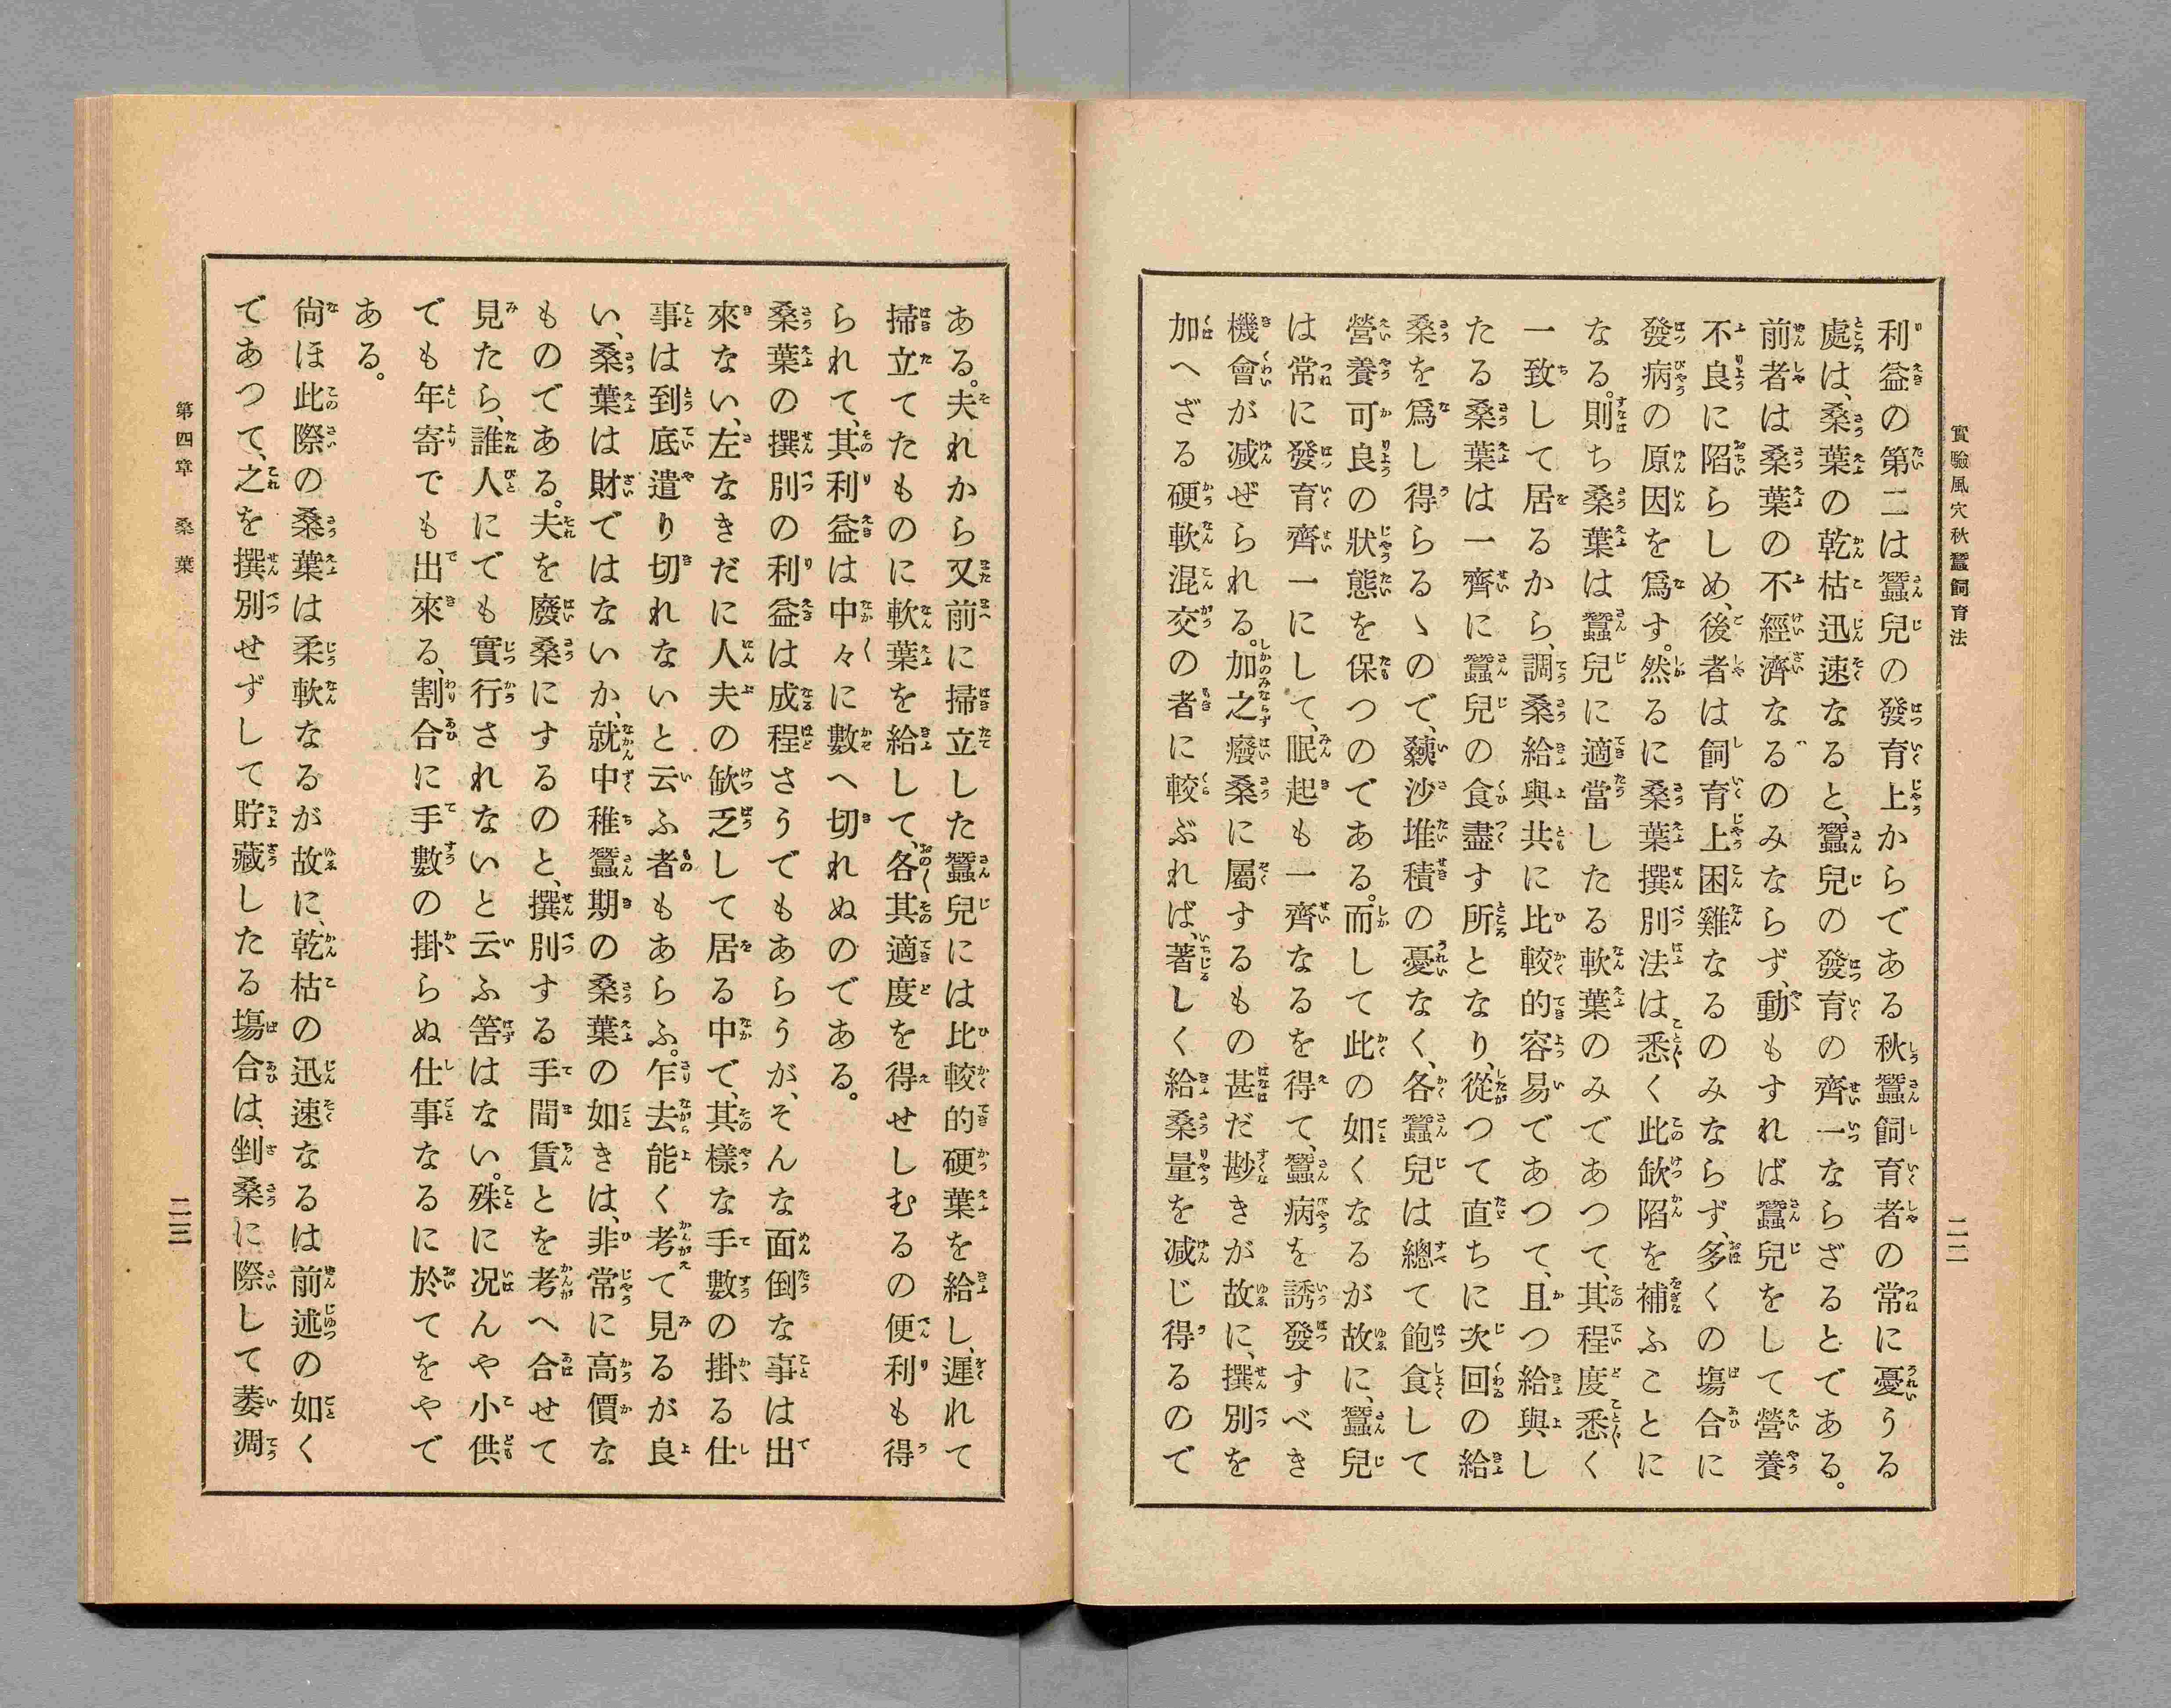 實驗風穴秋蠶飼育法
二二
利益の第二は蠶兒の發育上からである秋蠶飼育者の常に憂うる
處は、桑葉の乾枯迅速なると、蠶兒の發育の齊一ならざるとである。
前者は桑葉の不經濟なるのみならず、動もすれば蠶兒をして營養
不良に陷らしめ、後者は飼育上困難なるのみならず、多くの塲合に
發病の原因を爲す。然るに桑葉撰別法は、悉く此缺陷を補ふことに
なる。則ち桑葉は蠶兒に適當したる軟葉のみであつて、其程度悉く
一致して居るから、調桑給與共に比較的容易であつて、且つ給與し
たる桑葉は一齊に蠶兒の食盡す所となり、從つて直ちに次回の給
桑を爲し得らるゝので、蠶沙堆積の憂なく、各蠶兒は總て飽食して
營養可良の狀態を保つのである。而して此の如くなるが故に、蠶兒
は常に發育齊一にして、眠起も一齊なるを得て、蠶病を誘發すべき
機會が減ぜられる。加之癈桑に屬するもの甚だ尠きが故に、撰別を
加へざる硬軟混交の者に較ぶれば、著しく給桑量を減じ得るので
ある。夫れから又前に掃立した蠶兒には比較的硬葉を給し、遲れて
掃立てたものに軟葉を給して、各其適度を得せしむるの便利も得
られて、其利益は中々に數へ切れぬのである。
桑葉の撰別の利益は成程さうでもあらうが、そんな面倒な事は出
來ない、左なきだに人夫の缺乏して居る中で、其樣な手數の掛る仕
事は到底遣り切れないと云ふ者もあらふ。乍去能く考て見るが良
い、桑葉は財ではないか、就中稚蠶期の桑葉の如きは、非常に高價な
ものである。夫を廢桑にするのと、撰別する手間賃とを考へ合せて
見たら、誰人にでも實行されないと云ふ筈はない。殊に况んや小供
でも年寄でも出來る、割合に手數の掛らぬ仕事なるに於てをやで
ある。
尙ほ此際の桑葉は柔軟なるが故に、乾枯の迅速なるは前述の如く
であつて、之を撰別せずして貯藏したる塲合は、剉桑に際して萎凋
第四章 桑葉
二三